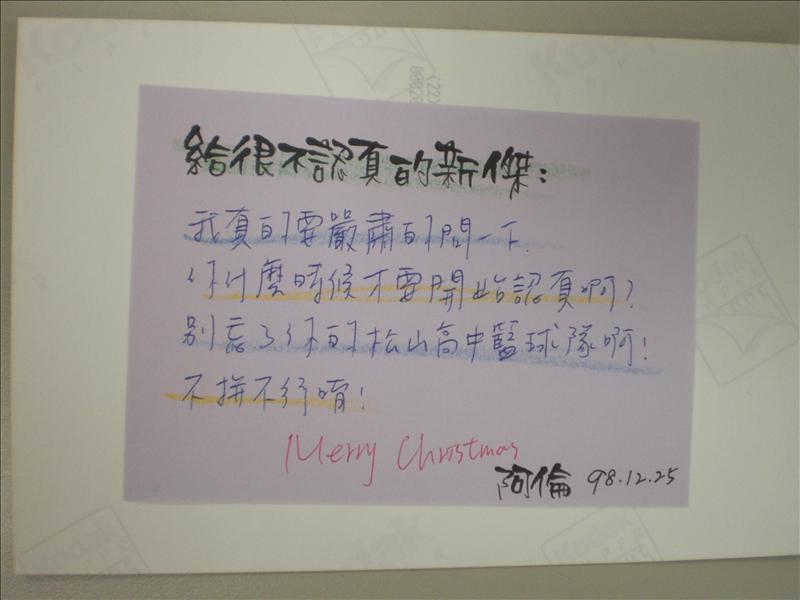 給很不認真的新傑：
我真的要嚴肅的問一下.
你什麼時候才要開始認真啊？
別忘了你的松山高中籃球隊啊！
不拼不行唷！
Merry Christmas
阿倫 98.12.25
Kodak